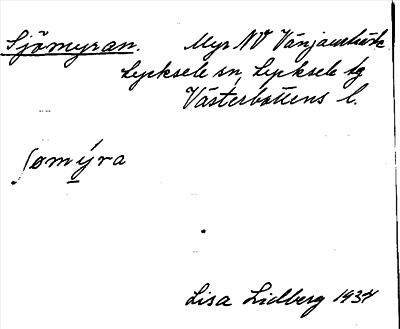 Sjömyran. Myr NV Vänjaurträsk
Lycksele sn, Lycksele tg
Västerbottens l.
ʃømýra
Lisa Lidberg 1937